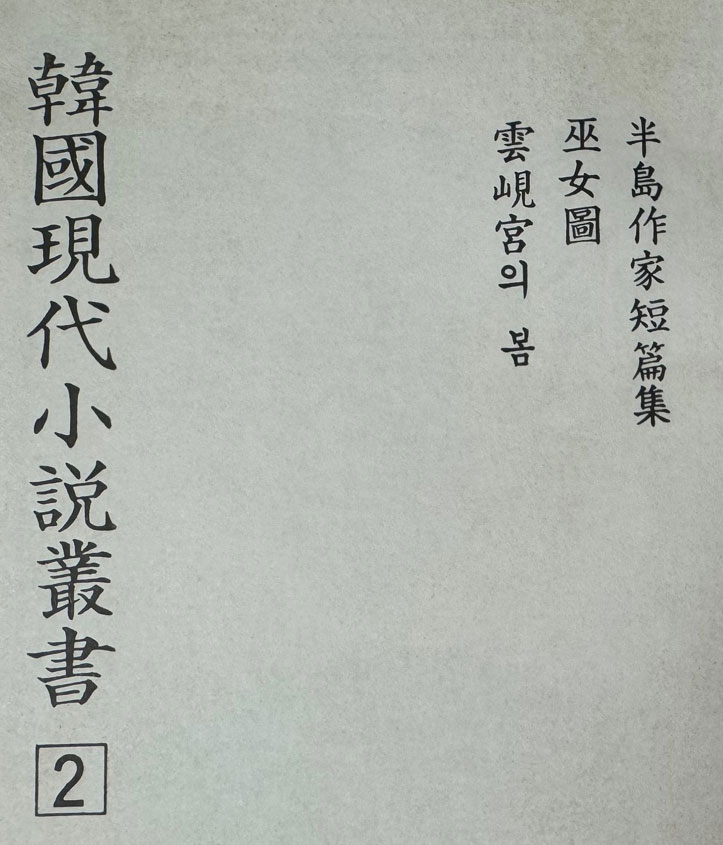 半島作家短篇集
巫女圖
雲峴宮의 봄
韓國現代小説叢書
2